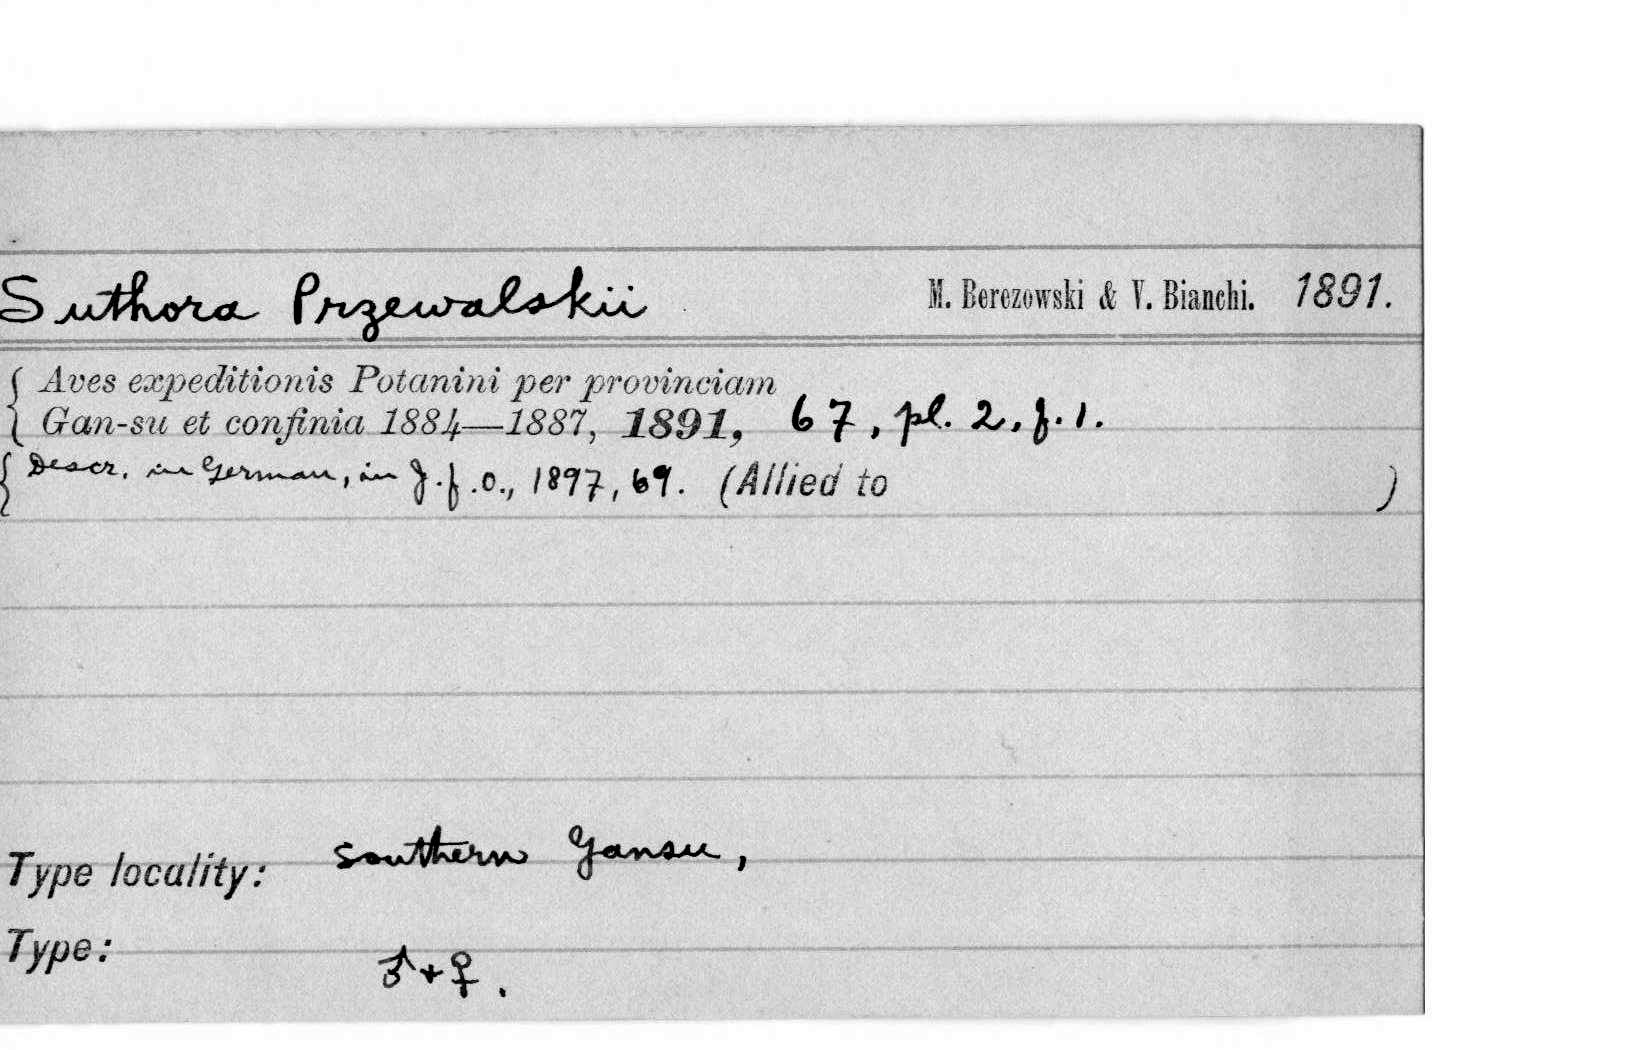 Suthora Przewalskii M. Berezowski & V. Bianchi. 1891.
Aves expeditionis Potanini per provinciam
Gan-su et confinia 1884—1887, 1891, 67, pl. 2, f. 1.
Descr. in German, in J.f.O., 1897, 69. (Allied to )
Type locality: southern Gansu,
Type: ♂ + ♀.